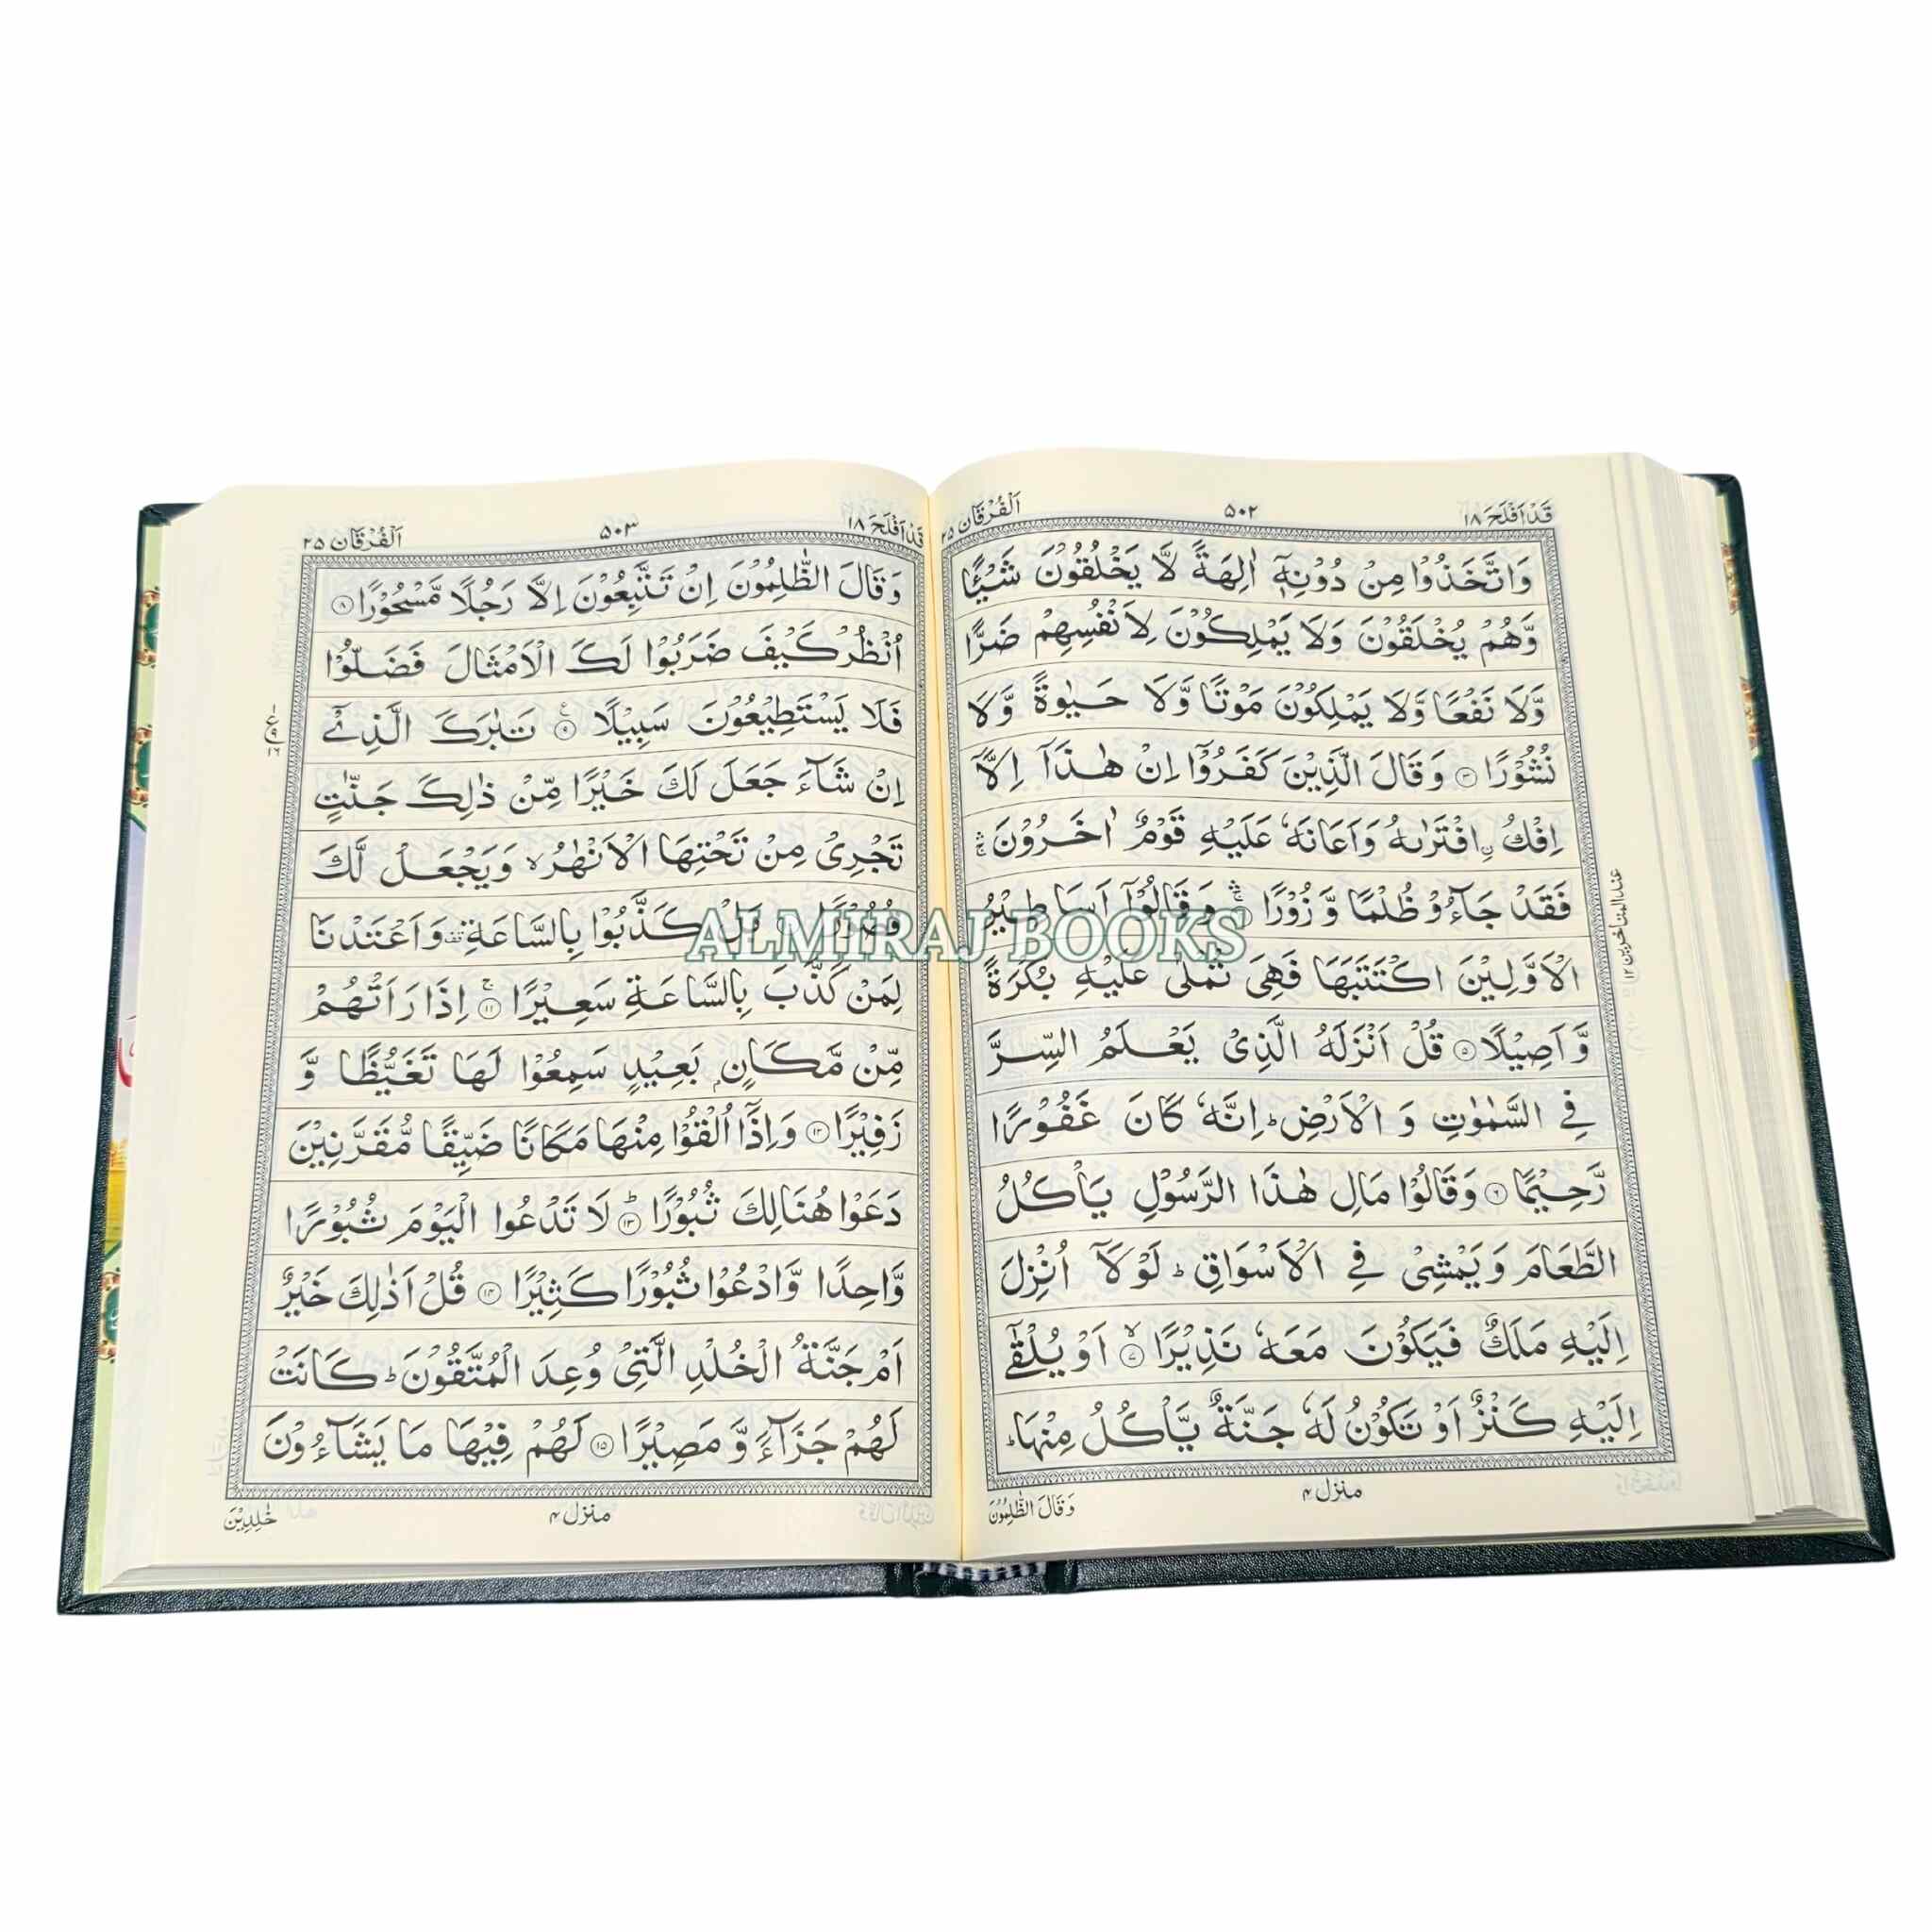 قَدْ اَفْلَحَ ١٨
٥٠٢
اَلْفُرْقَان ٢٥
وَاتَّخَذُوْا مِنْ دُوْنِهٖٓ اٰلِهَةً لَّا يَخْلُقُوْنَ شَيْـًٔا
وَّهُمْ يُخْلَقُوْنَ وَلَا يَمْلِكُوْنَ لِاَنْفُسِهِمْ ضَرًّا
وَّلَا نَفْعًا وَّلَا يَمْلِكُوْنَ مَوْتًا وَّلَا حَيٰوةً وَّلَا
نُشُوْرًا ﴿٣﴾ وَقَالَ الَّذِيْنَ كَفَرُوْٓا اِنْ هٰذَآ اِلَّآ
اِفْكُ ۨافْتَرٰىهُ وَاَعَانَهٗ عَلَيْهِ قَوْمٌ اٰخَرُوْنَ ۛۚ
فَقَدْ جَآءُوْ ظُلْمًا وَّزُوْرًا ۛۚ ﴿٤﴾ وَقَالُوْٓا اَسَاطِيْرُ
الْاَوَّلِيْنَ اكْتَتَبَهَا فَهِىَ تُمْلٰى عَلَيْهِ بُكْرَةً
وَّاَصِيْلًا ﴿٥﴾ قُلْ اَنْزَلَهُ الَّذِىْ يَعْلَمُ السِّرَّ
فِى السَّمٰوٰتِ وَ الْاَرْضِ ؕ اِنَّهٗ كَانَ غَفُوْرًا
رَّحِيْمًا ﴿٦﴾ وَقَالُوْا مَالِ هٰذَا الرَّسُوْلِ يَاْكُلُ
الطَّعَامَ وَيَمْشِىْ فِى الْاَسْوَاقِ ؕ لَوْلَآ اُنْزِلَ
اِلَيْهِ مَلَكٌ فَيَكُوْنَ مَعَهٗ نَذِيْرًا ۙ ﴿٧﴾ اَوْ يُلْقٰٓى
اِلَيْهِ كَنْزٌ اَوْ تَكُوْنُ لَهٗ جَنَّةٌ يَّاْكُلُ مِنْهَا ؕ
عند المتأخرين ١٢
منزل ٤
وَقَالَ الظّٰلِمُوْنَ
قَدْ اَفْلَحَ ١٨
٥٠٣
اَلْفُرْقَان ٢٥
وَقَالَ الظّٰلِمُوْنَ اِنْ تَتَّبِعُوْنَ اِلَّا رَجُلًا مَّسْحُوْرًا ﴿٨﴾
اُنْظُرْ كَيْفَ ضَرَبُوْا لَكَ الْاَمْثَالَ فَضَلُّوْا
فَلَا يَسْتَطِيْعُوْنَ سَبِيْلًا ﴿٩﴾ تَبٰرَكَ الَّذِىْٓ
اِنْ شَآءَ جَعَلَ لَكَ خَيْرًا مِّنْ ذٰلِكَ جَنّٰتٍ
تَجْرِىْ مِنْ تَحْتِهَا الْاَنْهٰرُ ۙ وَيَجْعَلْ لَّكَ
قُصُوْرًا بَلْ كَذَّبُوْا بِالسَّاعَةِ وَاَعْتَدْنَا
لِمَنْ كَذَّبَ بِالسَّاعَةِ سَعِيْرًا ۚ ﴿١١﴾ اِذَا رَاَتْهُمْ
مِّنْ مَّكَانٍۭ بَعِيْدٍ سَمِعُوْا لَهَا تَغَيُّظًا وَّ
زَفِيْرًا ﴿١٢﴾ وَاِذَآ اُلْقُوْا مِنْهَا مَكَانًا ضَيِّقًا مُّقَرَّنِيْنَ
دَعَوْا هُنَالِكَ ثُبُوْرًا ؕ ﴿١٣﴾ لَا تَدْعُوا الْيَوْمَ ثُبُوْرًا
وَّاحِدًا وَّادْعُوْا ثُبُوْرًا كَثِيْرًا ﴿١٤﴾ قُلْ اَذٰلِكَ خَيْرٌ
اَمْ جَنَّةُ الْخُلْدِ الَّتِىْ وُعِدَ الْمُتَّقُوْنَ ؕ كَانَتْ
لَهُمْ جَزَآءً وَّ مَصِيْرًا ﴿١٥﴾ لَهُمْ فِيْهَا مَا يَشَآءُوْنَ
منزل ٤
خٰلِدِيْنَ
ALMIRAJ BOOKS